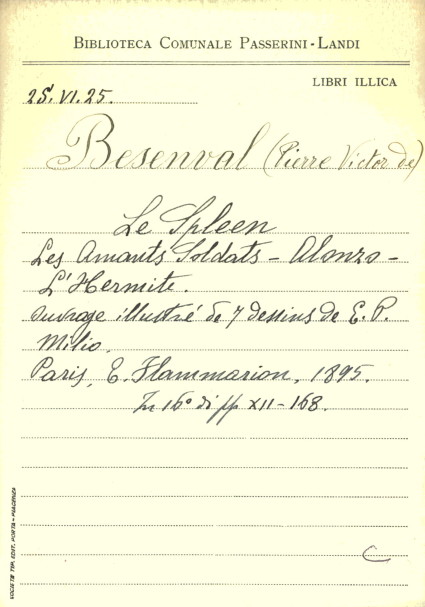 BIBLIOTECA COMUNALE PASSERINI-LANDI
LIBRI ILLICA
25.VI.25.
Besenval (Pierre Victor de)
Le Spleen
Les Amants Soldats - Alonzo -
L'Hermite.
ouvrage illustré de 7 dessins de E. P.
Milio.
Paris, E. Flammarion, 1895.
In 16° di pp XII-168.
C
SOCIETÀ TIP. EDIT. PORTA - PIACENZA